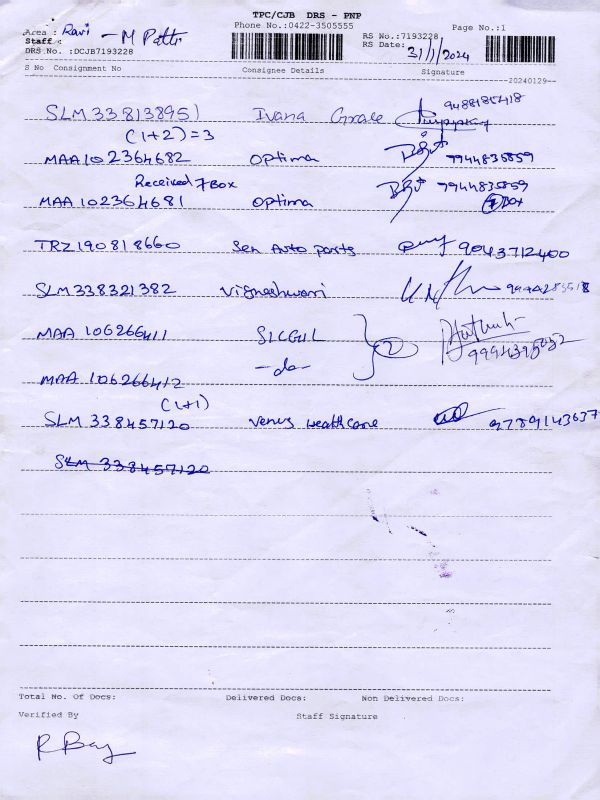 TPC/CJB DRS - PNP
Phone No.:0422-3505555 Page No.:1
Area : Ravi - M Patti RS No.:7193228
Staff : RS Date: 31/1/2024
DRS No. :DCJB7193228
S No Consignment No Consignee Details Signature
20240129
SLM 338138951 Ivana Grace 9488185418
(1+2)=3
MAA 102364682 Optima 7944835859
Received 7 Box
MAA 102364681 Optima 7944835859
7 Box
TRZ 190818660 Sen Auto parts 9043712400
SLM 338321382 Vigneshwari
MAA 106266411 SICGIL 2
MAA 106266412 -do-
(1+1)
SLM 338457120 Venus Healthcare 9789143637
SLM 338457120
Total No. Of Docs: Delivered Docs: Non Delivered Docs:
Verified By Staff Signature